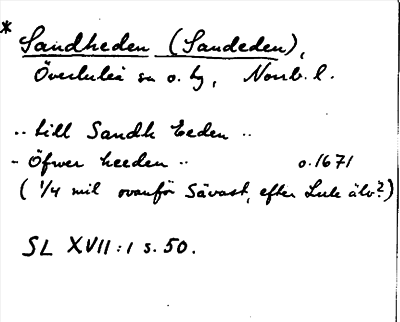 * Sandheden (Sandeden),
Överluleå sn o. tg, Norrb. l.
.. till Sandh Eeden ..
- Öfwer heeden .. o. 1671
(1/4 mil ovanför Sävast, efter Lule älv?)
SL XVII:1 s. 50.